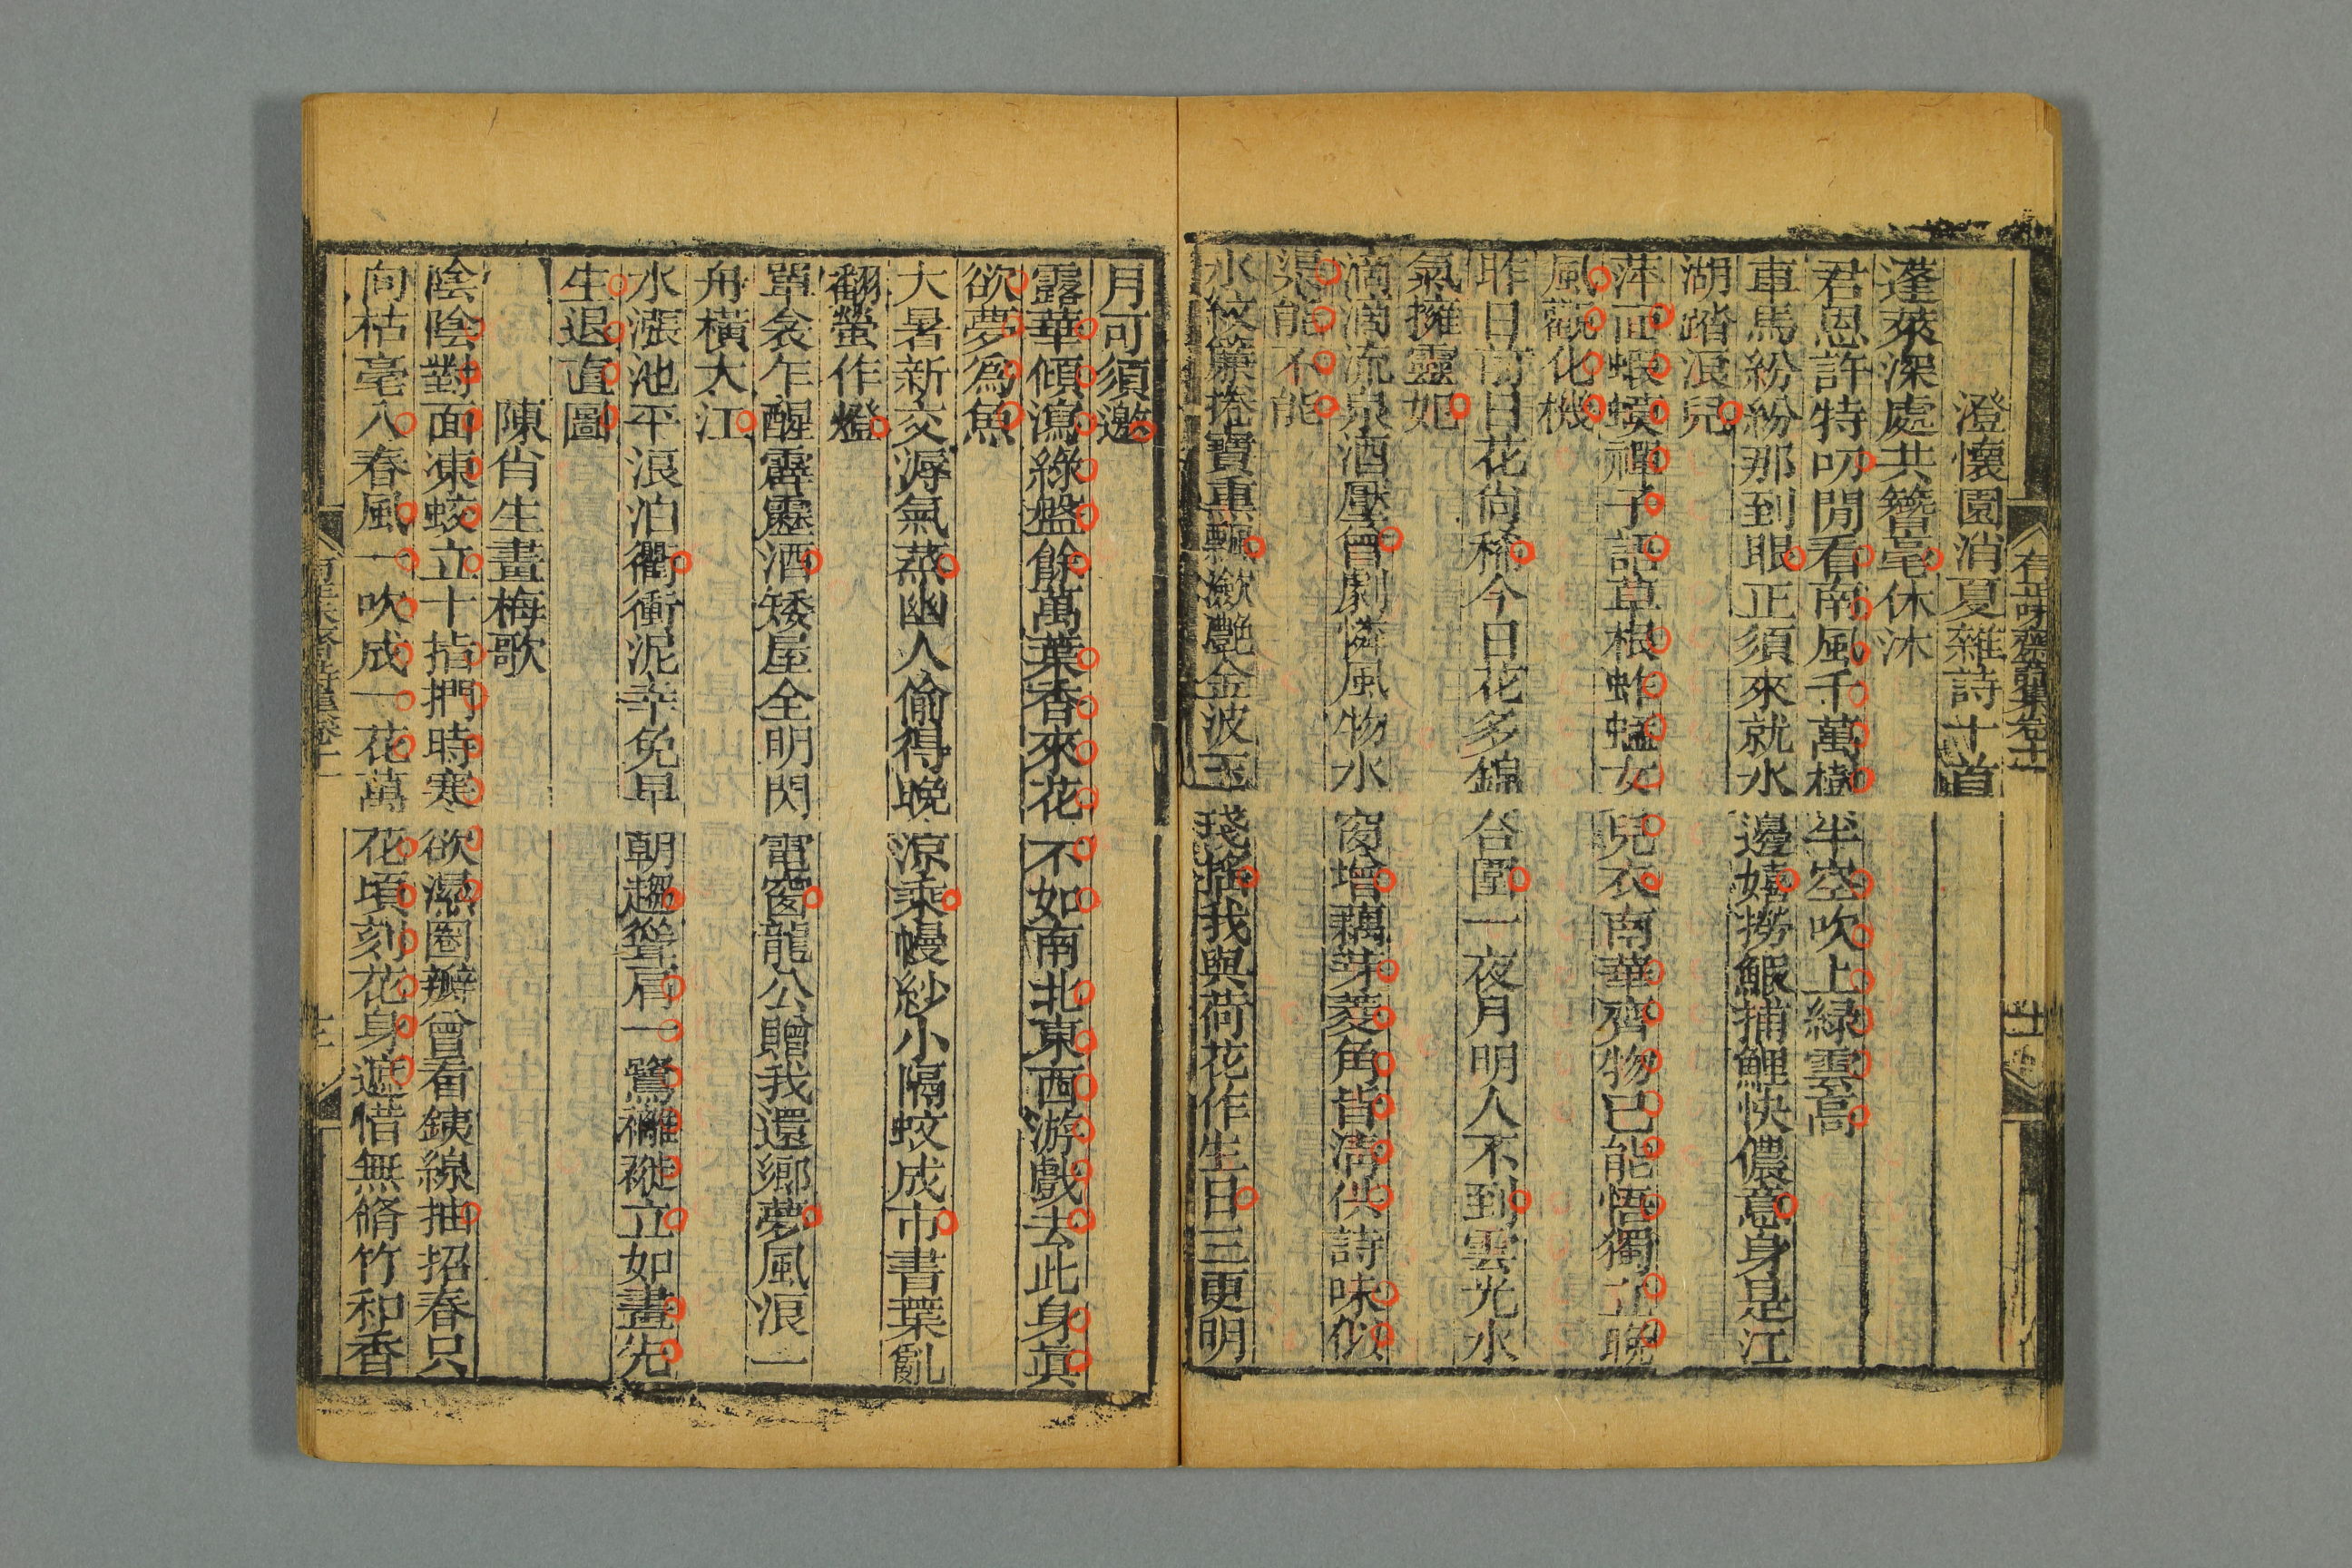 有正味齋詩集卷十一
澄懷園消夏雜詩十首
蓬萊深處共簪毫休沐
君恩許特叨閒看南風千萬樹半空吹上綠雲高
車馬紛紛那到眼正須來就水邊嬉撈鰕捕鯉快儂意身是江
湖踏浪兒
萍面蝦蟆禪子語草根蚱蜢女兒衣南華齊物已能悟獨立晚
風觀化機
昨日前日花尚稀今日花多錦合圍一夜月明人不到雲光水
氣擁靈妃
滴滴流泉酒壓曾劇憐風物水窗增藕芽菱角皆清供詩味似
渠能不能
水紋簾捲寶重飄瀲灧金波玉琖搖我與荷花作生日三更明
月可須邀
露華傾瀉綠盤餘萬葉香來花不如南北東西游戲去此身真
欲夢為魚
大暑新交溽氣蒸幽人偷得晚涼乘幔紗小隔蚊成市書葉亂
翻螢作燈
單衾乍醒霹靂酒矮屋全明閃電窗龍公贈我還鄉夢風浪一
舟橫大江
水漲池平浪泊衢衝泥幸免早朝趨聳肩一鷺襳褷立如畫先
生退直圖
陳肖生畫梅歌
陰陰對面凍蛟立十指捫時寒欲濕圈瓣曾看銕線抽招春只
向枯毫入春風一吹成一花萬花頃刻花身遮惜無脩竹和香